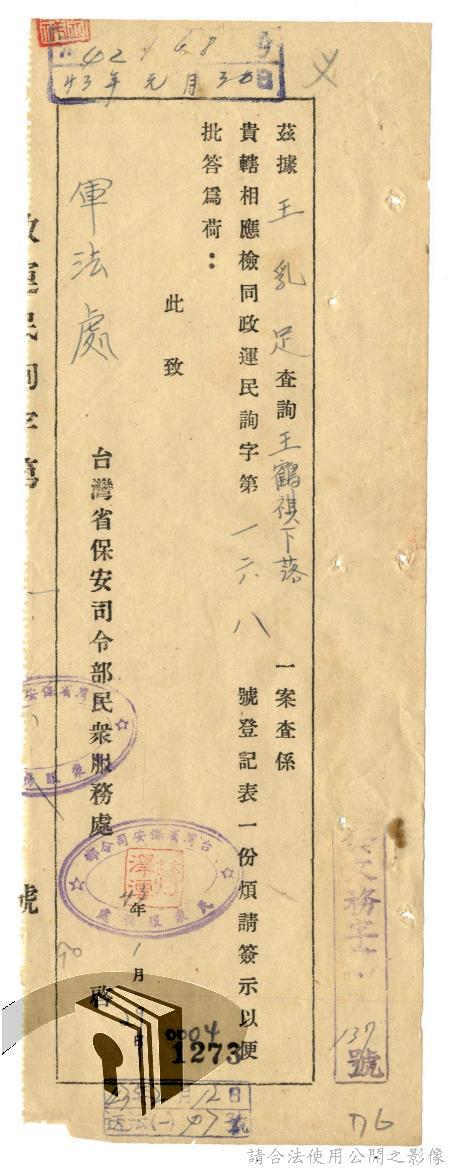 42 1 68 號
43年元月30日
茲據王乳足查詢王鶴祺下落一案查係
貴轄相應檢同政運民詢字第一六八號登記表一份煩請簽示以便
批答爲荷：
此致
軍法處
台灣省保安司令部民衆服務處啓
年1月
台灣省保安司令部
民衆服務處
政運民詢字第
號
0004
1273
月12日
號
文務字
137
號
76
請合法使用公開之影像